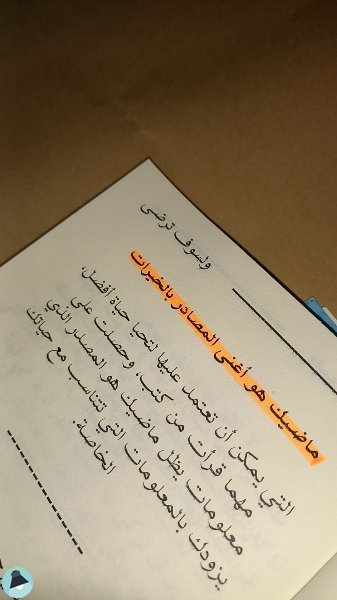 ولسوف ترضى
ماضيك هو أغنى المصادر بالخبرات
التي يمكن أن تعتمد عليها لتحيا حياة أفضل،
مهما قرأت من كتب، وحصلت على
معلومات يظل ماضيك هو المصدر الذي
يزودك بالمعلومات التي تتناسب مع حياتك
الخاصة.